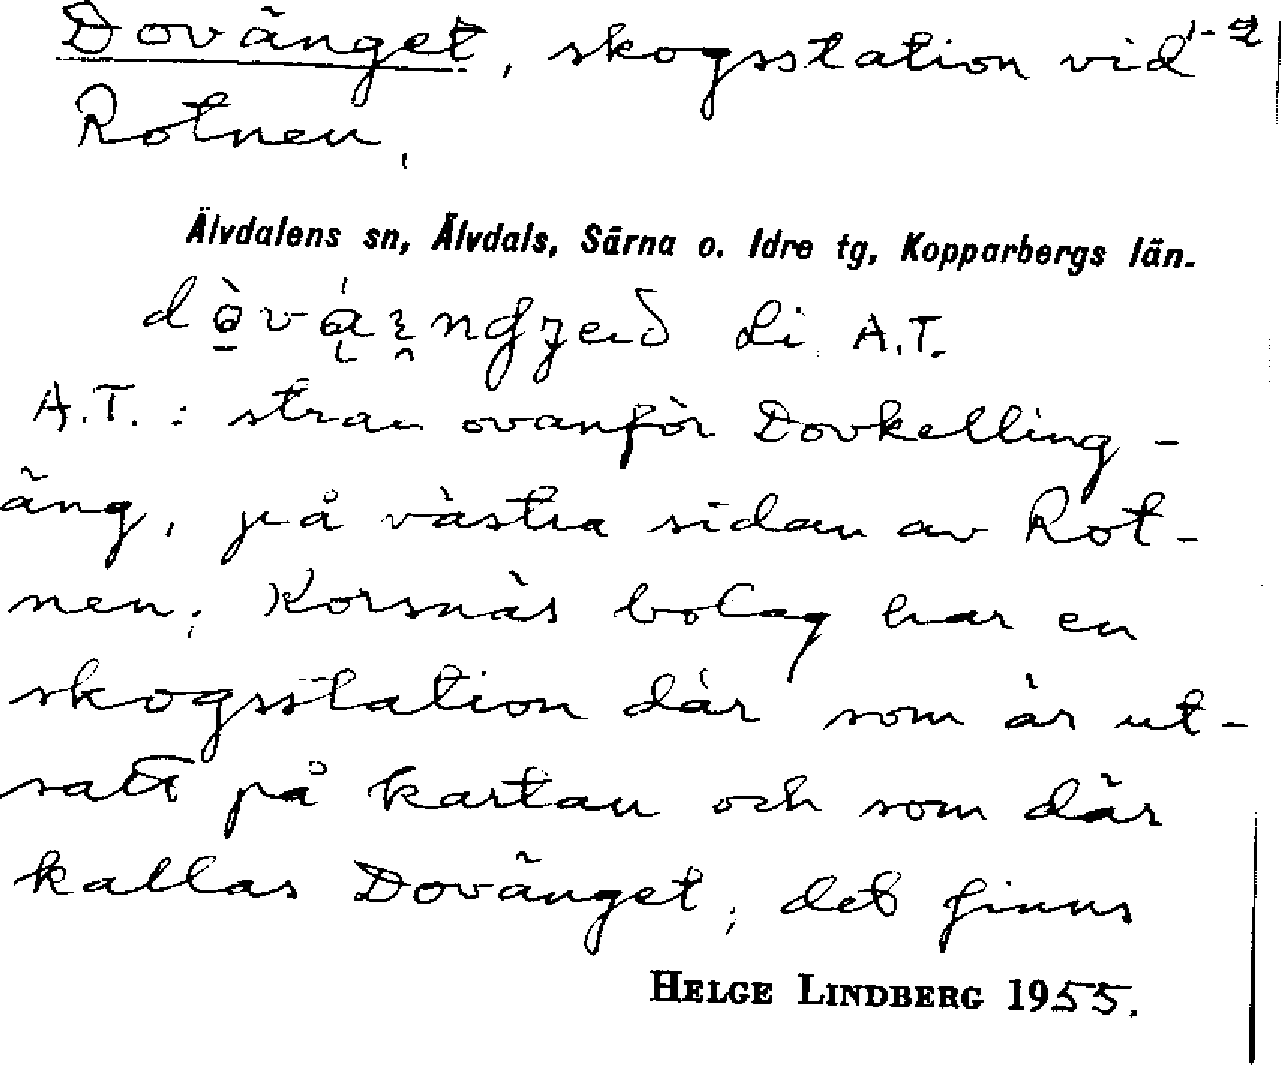 Dovänget, skogsstation vid 1-2
Rotnen.
Älvdalens sn, Älvdals, Särna o. Idre tg, Kopparbergs län.
Li A.T.
A.T.: strax ovanför Dovkelling-
äng, på västra sidan av Rot-
nen; Korsnäs bolag har en
skogsstation där som är ut-
satt på kartan och som där
kallas Dovänget; det finns
HELGE LINDBERG 1955.